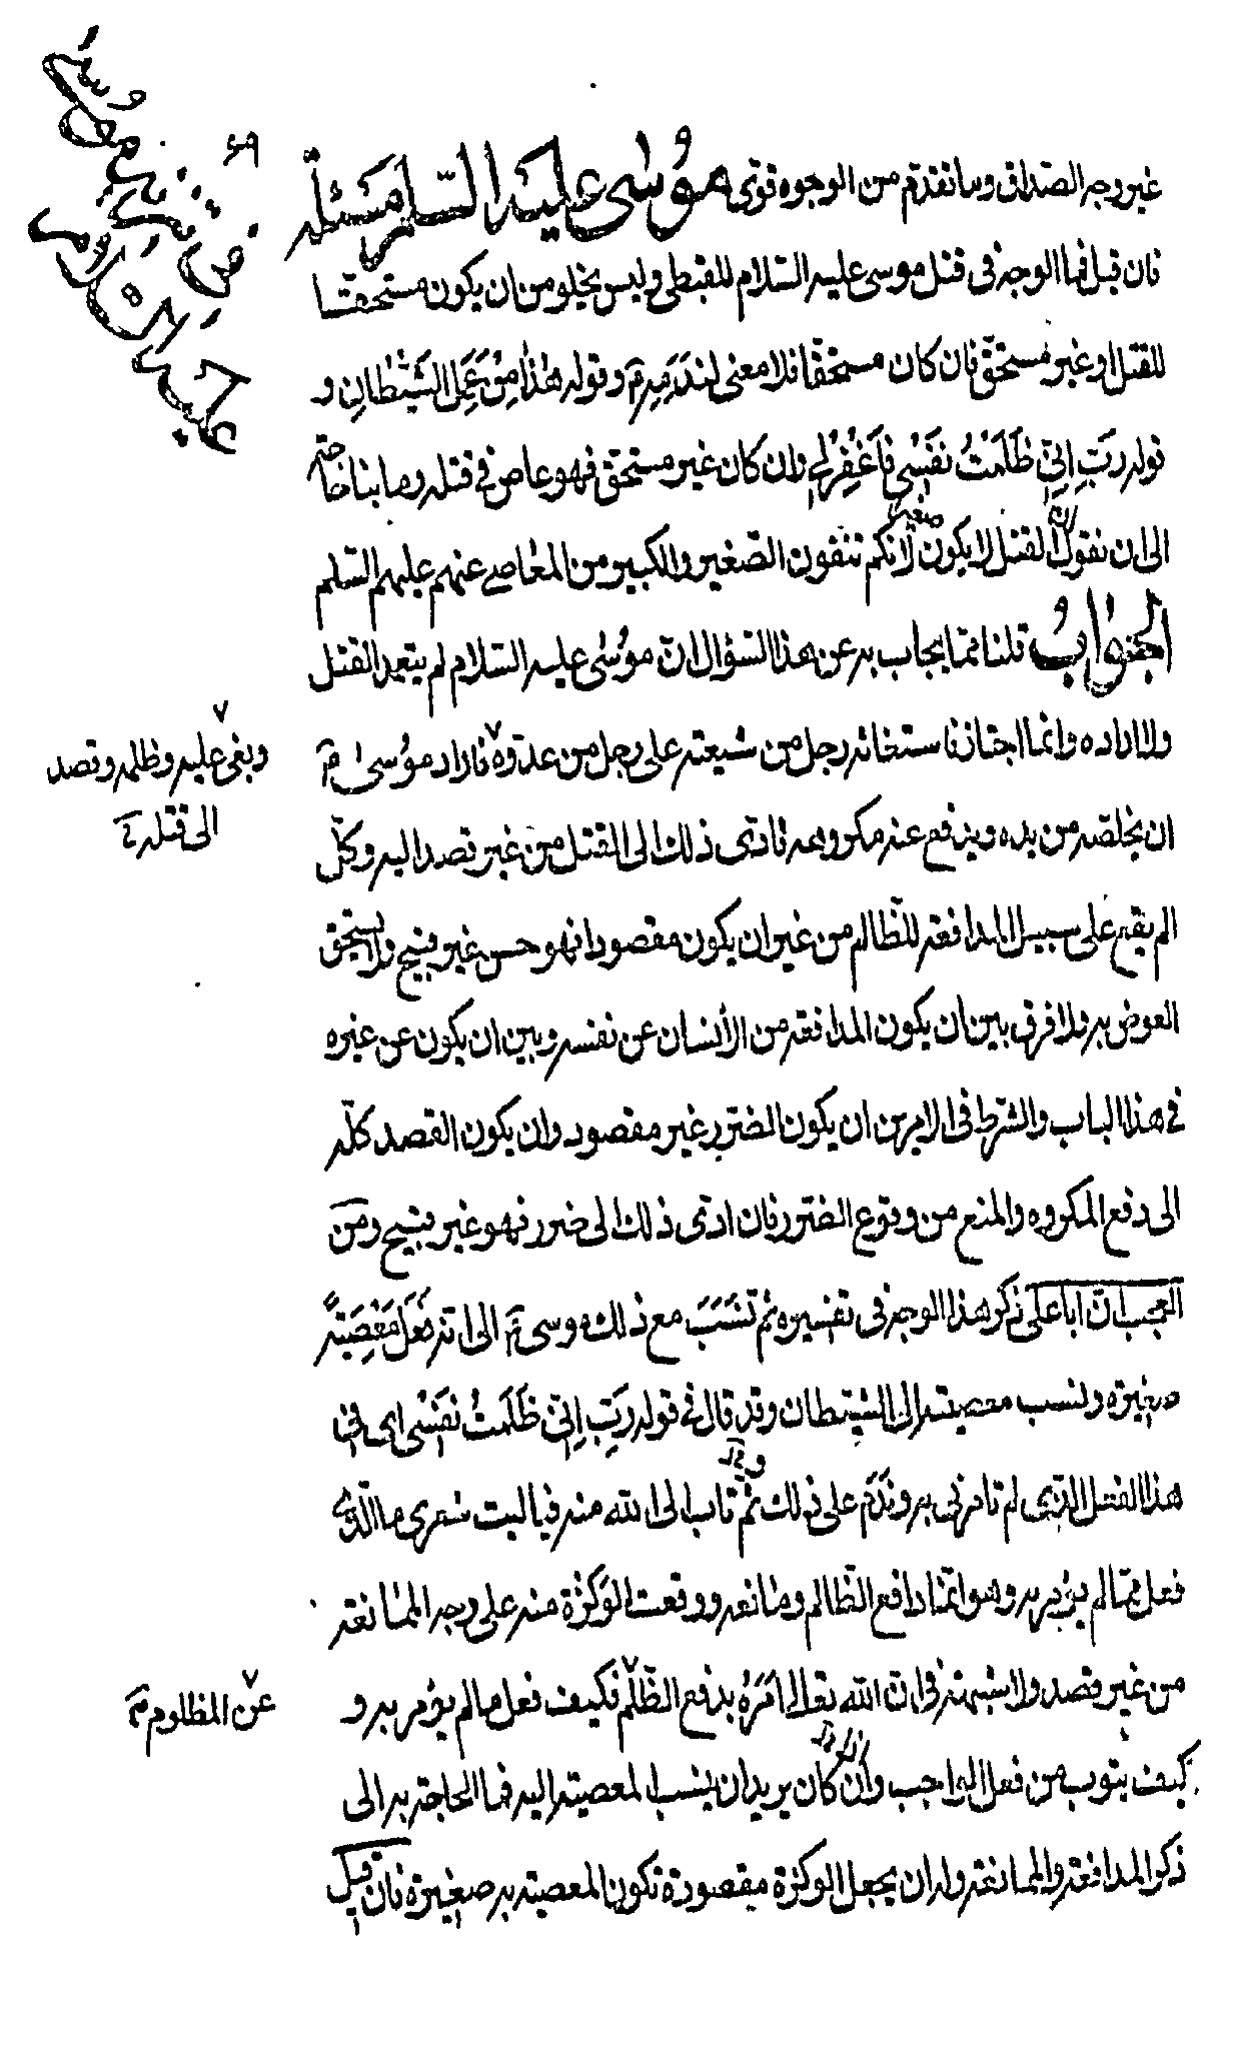 في تنزيه موسى
عليه السلام
۶۹
غير وجه الصداق وما تقدم من الوجوه قوى موسى عليه السلام مسئلة
فان قيل فما الوجه في قتل موسى عليه السلام للقبطى وليس يخلو من ان يكون مستحقا
للقتل او غير مستحق فان كان مستحقا فلا معنى لندمه ۴ وقوله هذا من عمل الشيطان و
قوله رب انى ظلمت نفسى فاغفر لى وان كان غير مستحق فهو عاص في قتله وما بنا حاجة
الى ان نقول ان القتل لا يكون صغيرة لانكم تنفون الصغير والكبير من المعاصى عنهم عليهم السلم
الجواب قلنا مما يجاب به عن هذا السؤال ان موسى عليه السلام لم يتعمد القتل
ولا اراده وانما اجتاز فاستغاثه رجل من شيعته على رجل من عدوه فاراد موسى ۴
وبغى عليه وظلمه وقصد
الى قتله
ان يخلصه من يده ويدفع عنه مكروهه فادى ذلك الى القتل من غير قصد اليه وكل
الم يقع على سبيل المدافعة للظالم من غير ان يكون مقصودا فهو حسن غير قبيح ولا يستحق
العوض به ولا فرق بين ان يكون المدافعة من الانسان عن نفسه وبين ان يكون عن غيره
في هذا الباب والشرط فى الامرين ان يكون الضرر غير مقصود وان يكون القصد كله
الى دفع المكروه والمنع من وقوع الضرر فان ادى ذلك الى ضرر فهو غير قبيح ومن
العجب ان ابا على ذكر هذا الوجه فى تفسيره ثم نسب مع ذلك موسى ۴ الى انه فعل معصية
صغيرة ونسب معصيته الى الشيطان وقد قال في قوله رب انى ظلمت نفسى اى فى
هذا الفعل الذى لم تامرنى به وندم على ذلك ثم تاب الى الله منه فيا ليت شعرى ما الذى
فعل مما لم يؤمر به وهو انما دافع الظالم ومانعه ووقعت الوكزة منه على وجه الممانعة
من غير قصد ولا شبهة في ان الله تعالى امره بدفع الظلم فكيف فعل ما لم يؤمر به و
عن المظلوم
كيف يتوب من فعل الواجب وان كان يريد ان ينسب المعصية اليه فما الحاجة به الى
ذكر المدافعة والممانعة وله ان يجعل الوكزة مقصودة تكون المعصية به صغيرة فان قيل